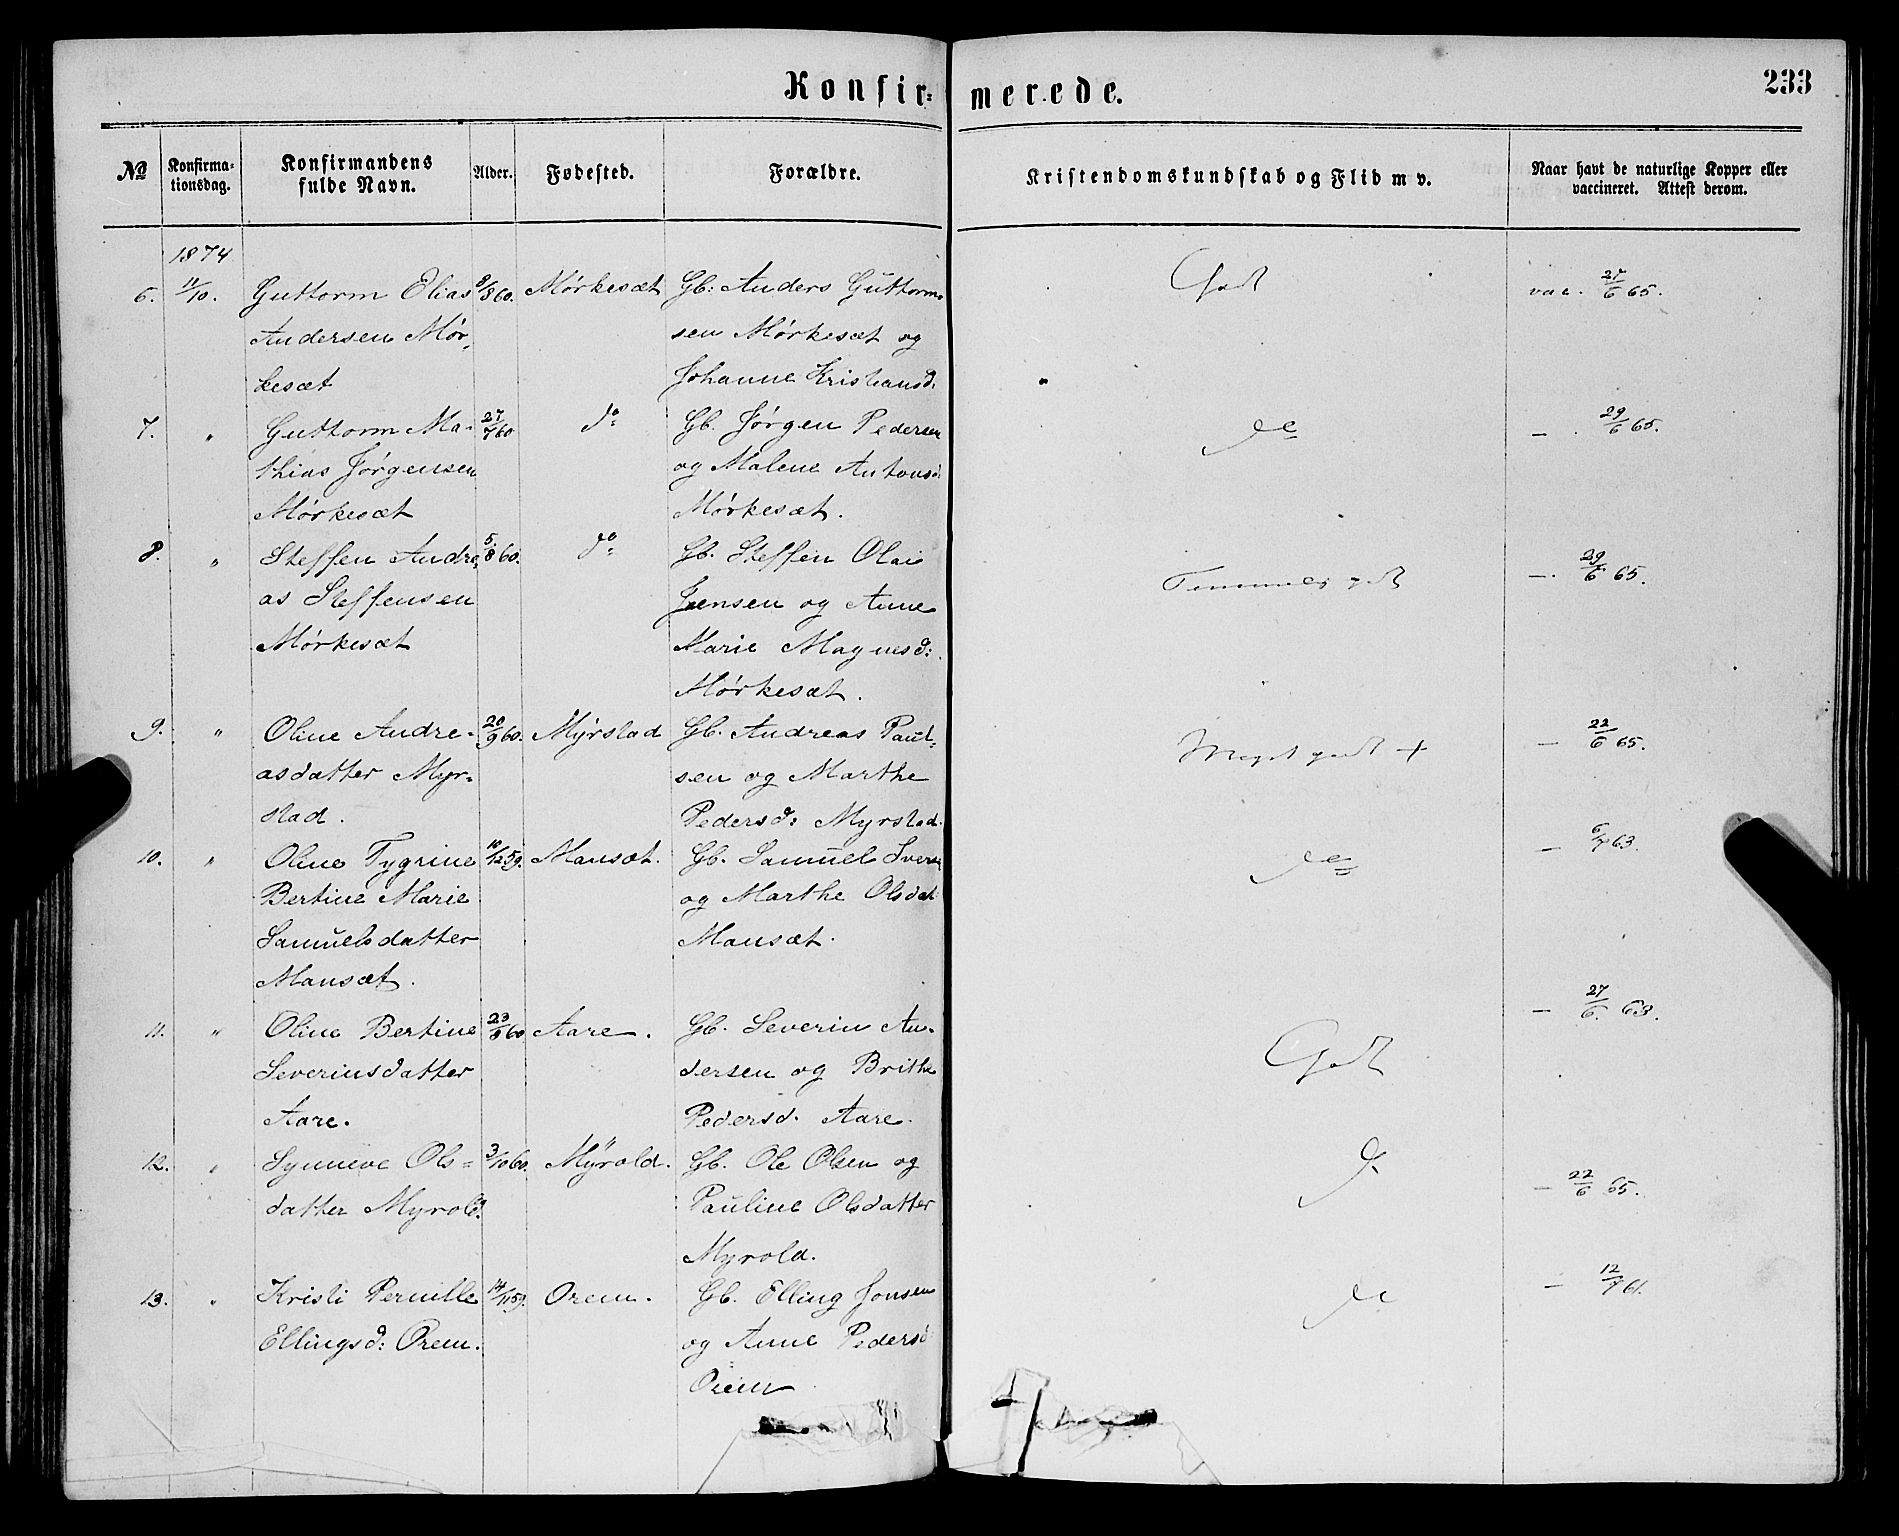 Konfir=
merede.
233
No
Konfirma=
tionsdag.
Konfirmandens
fulde Navn.
Alder.
Fødested.
Forældre.
Kristendomskundskab og Flid m v.
Naar havt de naturlige Kopper eller
vaccineret. Attest derom.
1874
6. 11/10. Guttorm Elias 9/8 60. Mørkesæt Gb: Anders Guttorm
Godt
vac. 27/6 65.
Andersen Mør,
sen Mørkesæt og
kesæt
Johanne Kristiansd:
7. " Guttorm Ma- 27/7 60 do Gb. Jørgen Pedersen
do
— . 29/6 65.
thias Jørgensen
og Malene Antonsd:
Mørkesæt
Mørkesæt.
8. " Steffen Andre, 5/8 60. do Gb. Steffen Olai
Temmelig godt
—. 29/6 65.
as Steffensen
Jensen og Anne
Mørkesæt
Marie Magnesd:
Mørkesæt.
9. " Oline Andre- 20/9 60. Myrstad Gb. Andreas Paul=
Meget godt +
— 22/6 65.
asdatter Myr=
sen og Marthe
stad.
Pedersd: Myrstad.
10. " Oline Tygrine 10/12 59. Mansæt. Gb. Samuel Ivers
do
— 6/7 63.
Bertine Marie
og Marthe Olsdat
Samuelsdatter
Mansæt.
Mansæt.
11. " Oline Bertine 23/9 60 Aare. Gb. Severin An-
Godt
— 27/6. 63.
Severinsdatter
dersen og Brithe
Aare.
Pedersd. Aare.
12. " Synneve Ols= 3/10 60. Myrold. Gb. Ole Olsen og
do
— 22/6 65.
datter Myrold.
Pauline Olsdatter
Myrold.
13. " Kristi Pernille 14/11 59. Orem. Gb. Elling Jonsen
do
— 12/7 61.
Ellingsd: Orem.
og Anne Pedersd
Orem